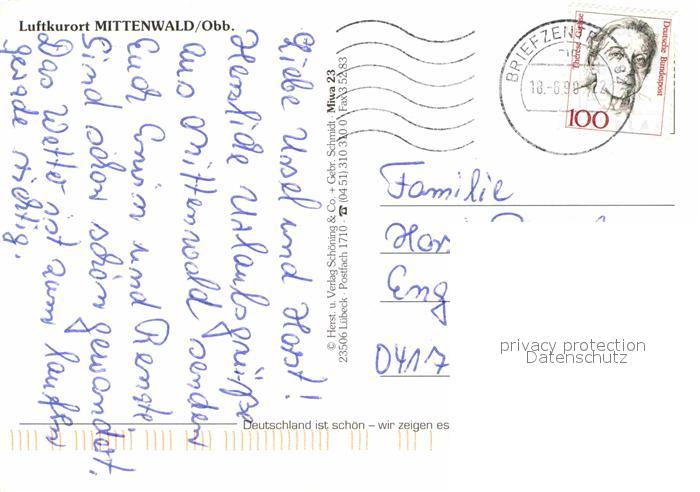 Luftkurort MITTENWALD/Obb.
Liebe Ursel und Horst!
Herzliche Urlaubsgrüße
aus Mittenwald senden
Euch Erwin und Renate.
Sind schon schön gewandert.
Das Wetter ist zum laufen
gerade richtig.
© Herst. u. Verlag Schöning & Co. + Gebr. Schmidt · Miwa 23
23506 Lübeck · Postfach 1710 · ☎ (04 51) 310 310 0 · Fax 3 52 83
BRIEFZENTRUM 82
18.-6.98
Deutsche Bundespost
100
Familie
Hor
Eng
04177
privacy protection
Datenschutz
Deutschland ist schön – wir zeigen es